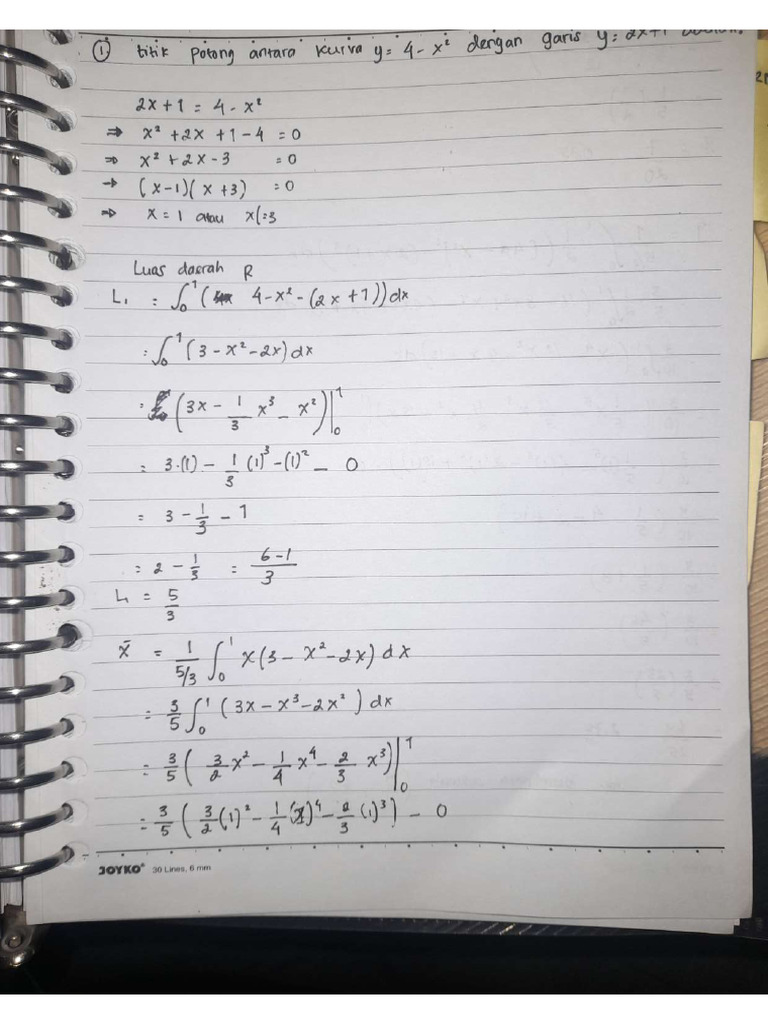 ① titik potong antara kurva y = 4 - x² dengan garis y = 2x+1
2x + 1 = 4 - x²
⇒ x² + 2x + 1 - 4 = 0
⇒ x² + 2x - 3 = 0
→ (x-1)(x+3) = 0
⇒ x = 1 atau x = -3
Luas daerah R
L₁ = ∫₀¹ (4 - x² - (2x + 1)) dx
= ∫₀¹ (3 - x² - 2x) dx
= (3x - 1/3 x³ - x²)|₀¹
= 3·(1) - 1/3 (1)³ - (1)² - 0
= 3 - 1/3 - 1
= 2 - 1/3 = 6-1/3
L = 5/3
x̄ = 1/5/3 ∫₀¹ x(3 - x² - 2x) dx
= 3/5 ∫₀¹ (3x - x³ - 2x²) dx
= 3/5 (3/2 x² - 1/4 x⁴ - 2/3 x³)|₀¹
= 3/5 (3/2 (1)² - 1/4 (1)⁴ - 2/3 (1)³) - 0
JOYKO® 30 Lines, 6 mm